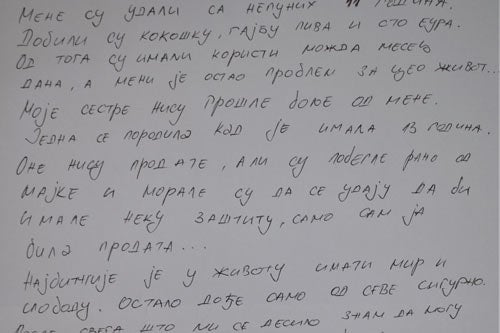 Мене су удали са непуних 11 година.
Добили су кокошку, гајбу пива и сто еура.
Од тога су имали користи можда месец
дана, а мени је остао проблем за цео живот...
Моје сестре нису прошле боље од мене.
Једна се породила кад је имала 13 година.
Оне нису продате, али су побегле рано од
мајке и морале су да се удају да би
имале неку заштиту, само сам ја
била продата...
Најбитније је у животу имати мир и
слободу. Остало дође само од себе сигурно.
После свега што ми се десило знам да могу